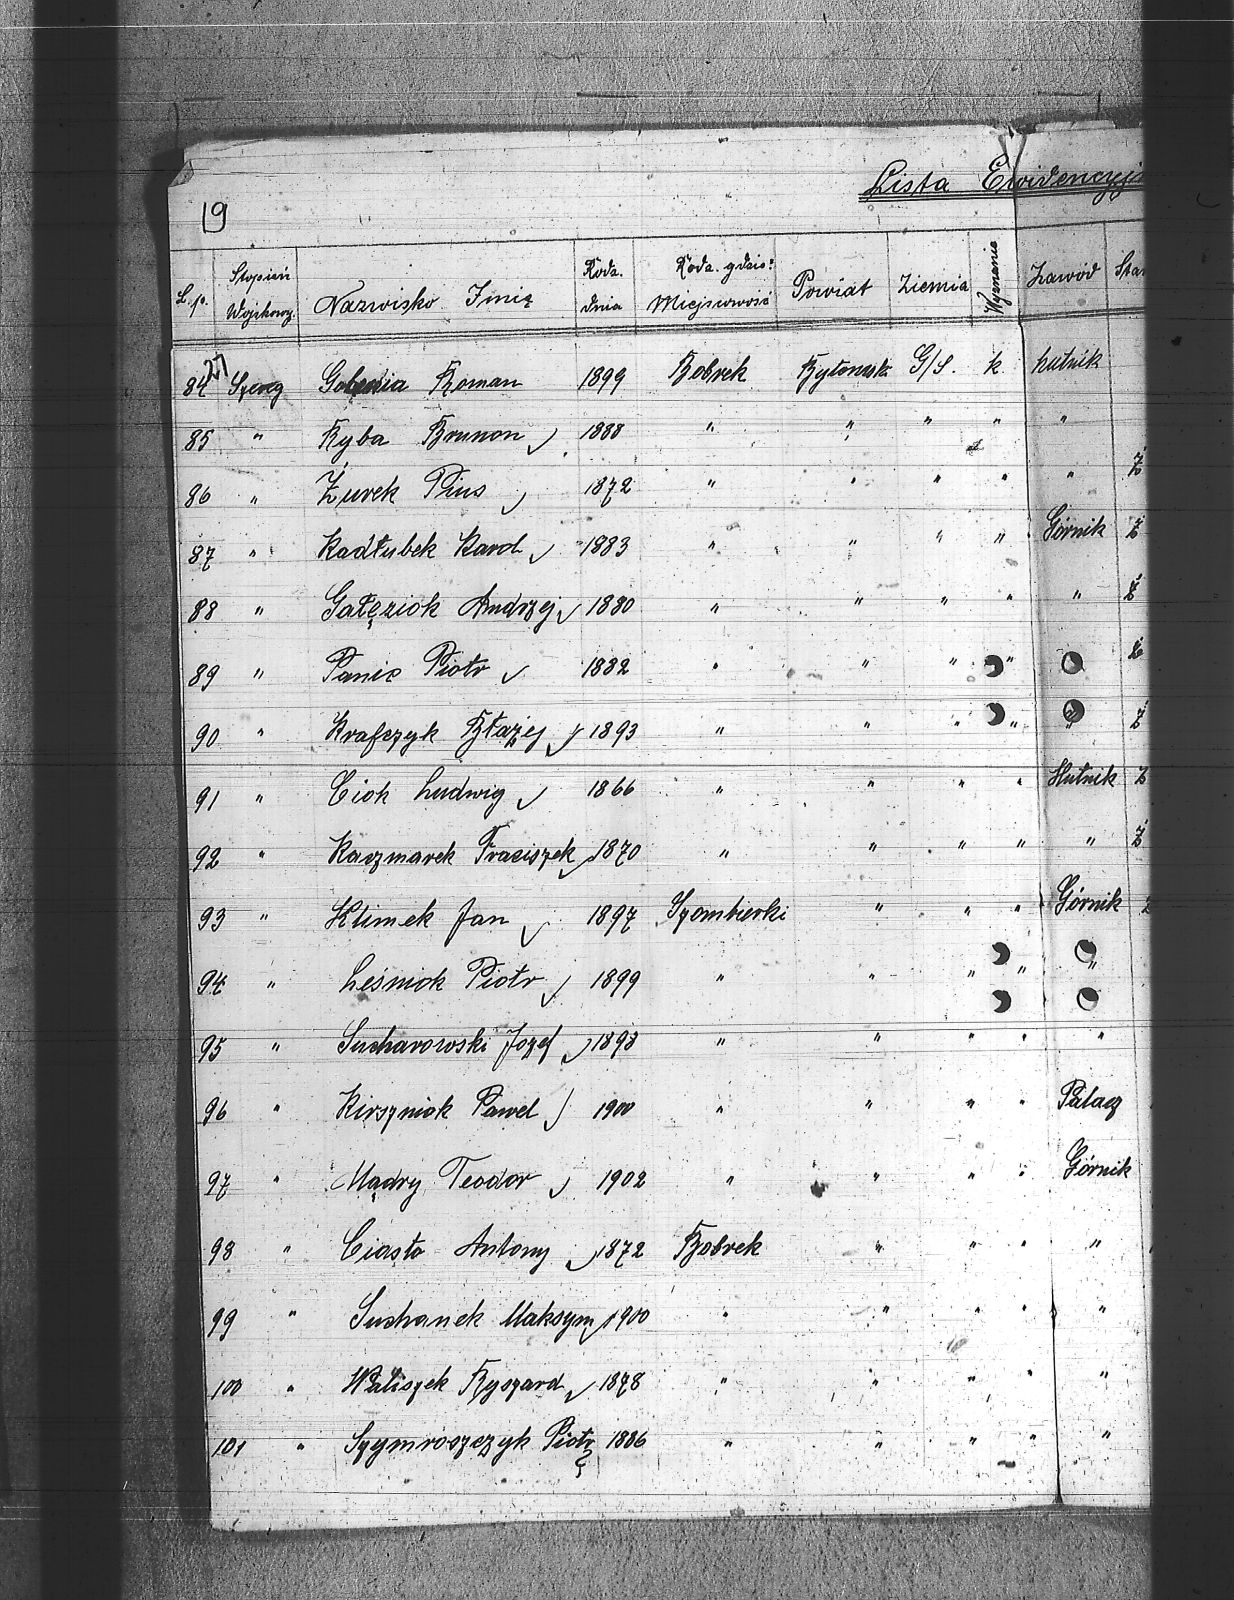 Lista Ewidencyj
19
L.p. Stopień Wojskowy. Nazwisko Imię Rodz. dnia Rodz. gdzie: Miejscowość Powiat Ziemia Wyznanie Zawód Sta
84 Szereg Roman 1899 Bobrek Bytomsk G/S. k hutnik
85 " Ryba Brunon 1888 " " " " "
86 " Żurek Pius 1872 " " " " " Ż
87 " Kadłubek Karol 1883 " " " " Górnik Ż
88 " Gałęziok Andrzej 1880 " " " " " Ż
89 " Panic Piotr 1882 " " " "
90 " Krafczyk Błażej 1893 " " " " " Ż
91 " Ciok Ludwig 1866 " " " " Hutnik Ż
92 " Kaczmarek Fraciszek 1870 " " " " " Ż
93 " Klimek Jan 1897 Szombierki " " " Górnik
94 " Leśniok Piotr 1899 " " " " "
95 " Sucharowski Jozef 1898 " " " " "
96 " Kirszniok Pawel 1900 " " " " Palacz
97 " Mądry Teodor 1902 " " " " Górnik
98 " Ciasto Antony 1872 Bobrek " " " "
99 " Suchanek Maksym 1900 " " " " "
100 " Waliszek Ryszard 1878 " " " " "
101 " Szymroszczyk Piotr 1886 " " " " "